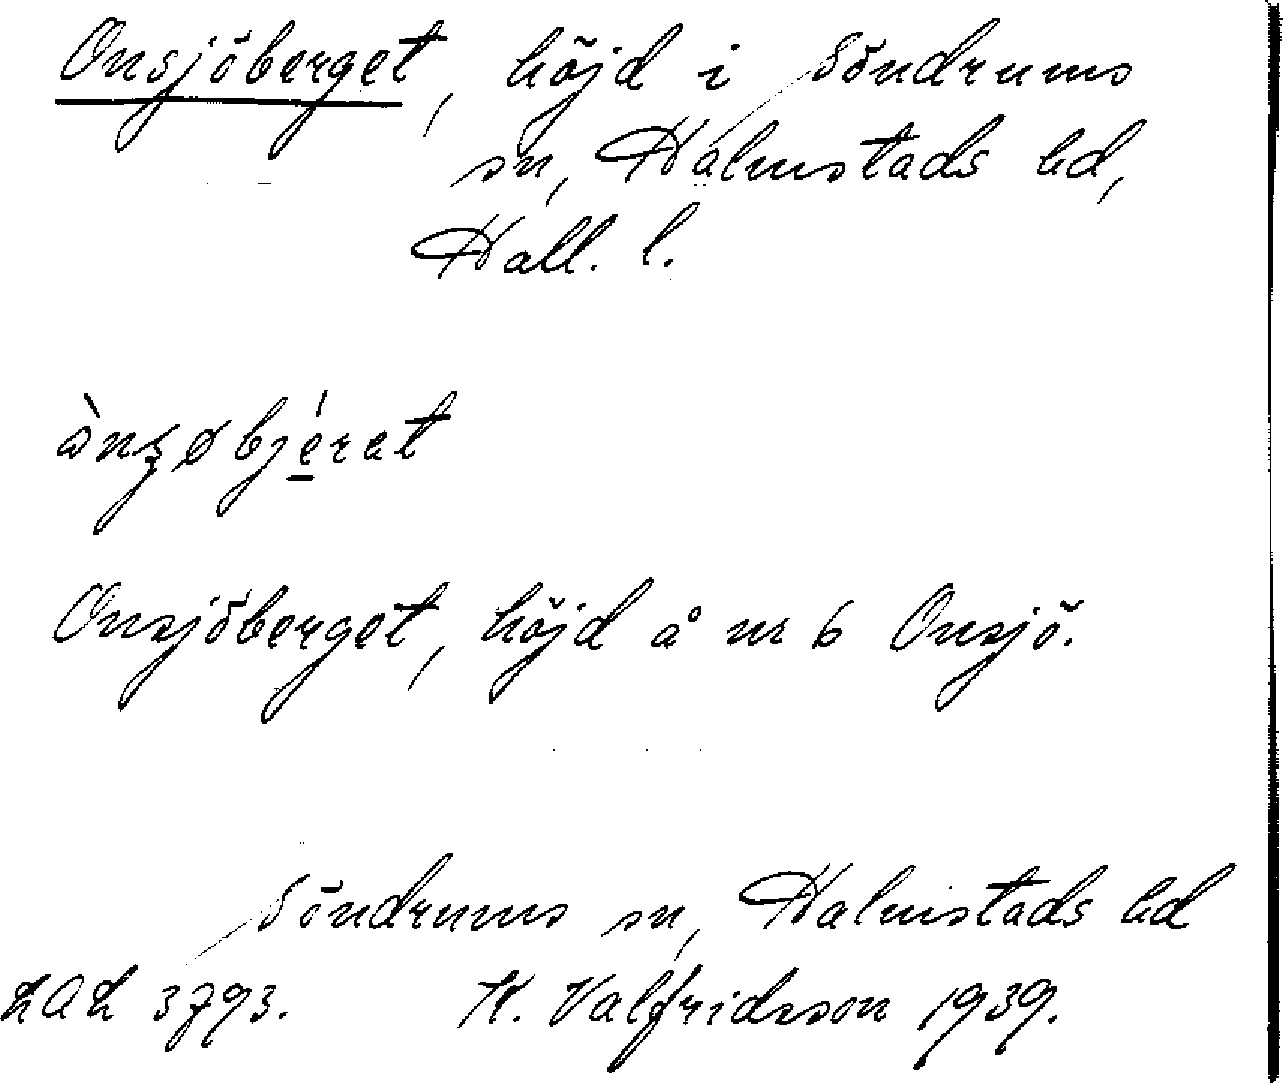 Onsjöberget, höjd i Söndrums
sn, Halmstads hd,
Hall. l.
Onsjöberget, höjd å nr 6 Onsjö.
Söndrums sn, Halmstads hd
LAL 3793. K. Valfridsson 1939.